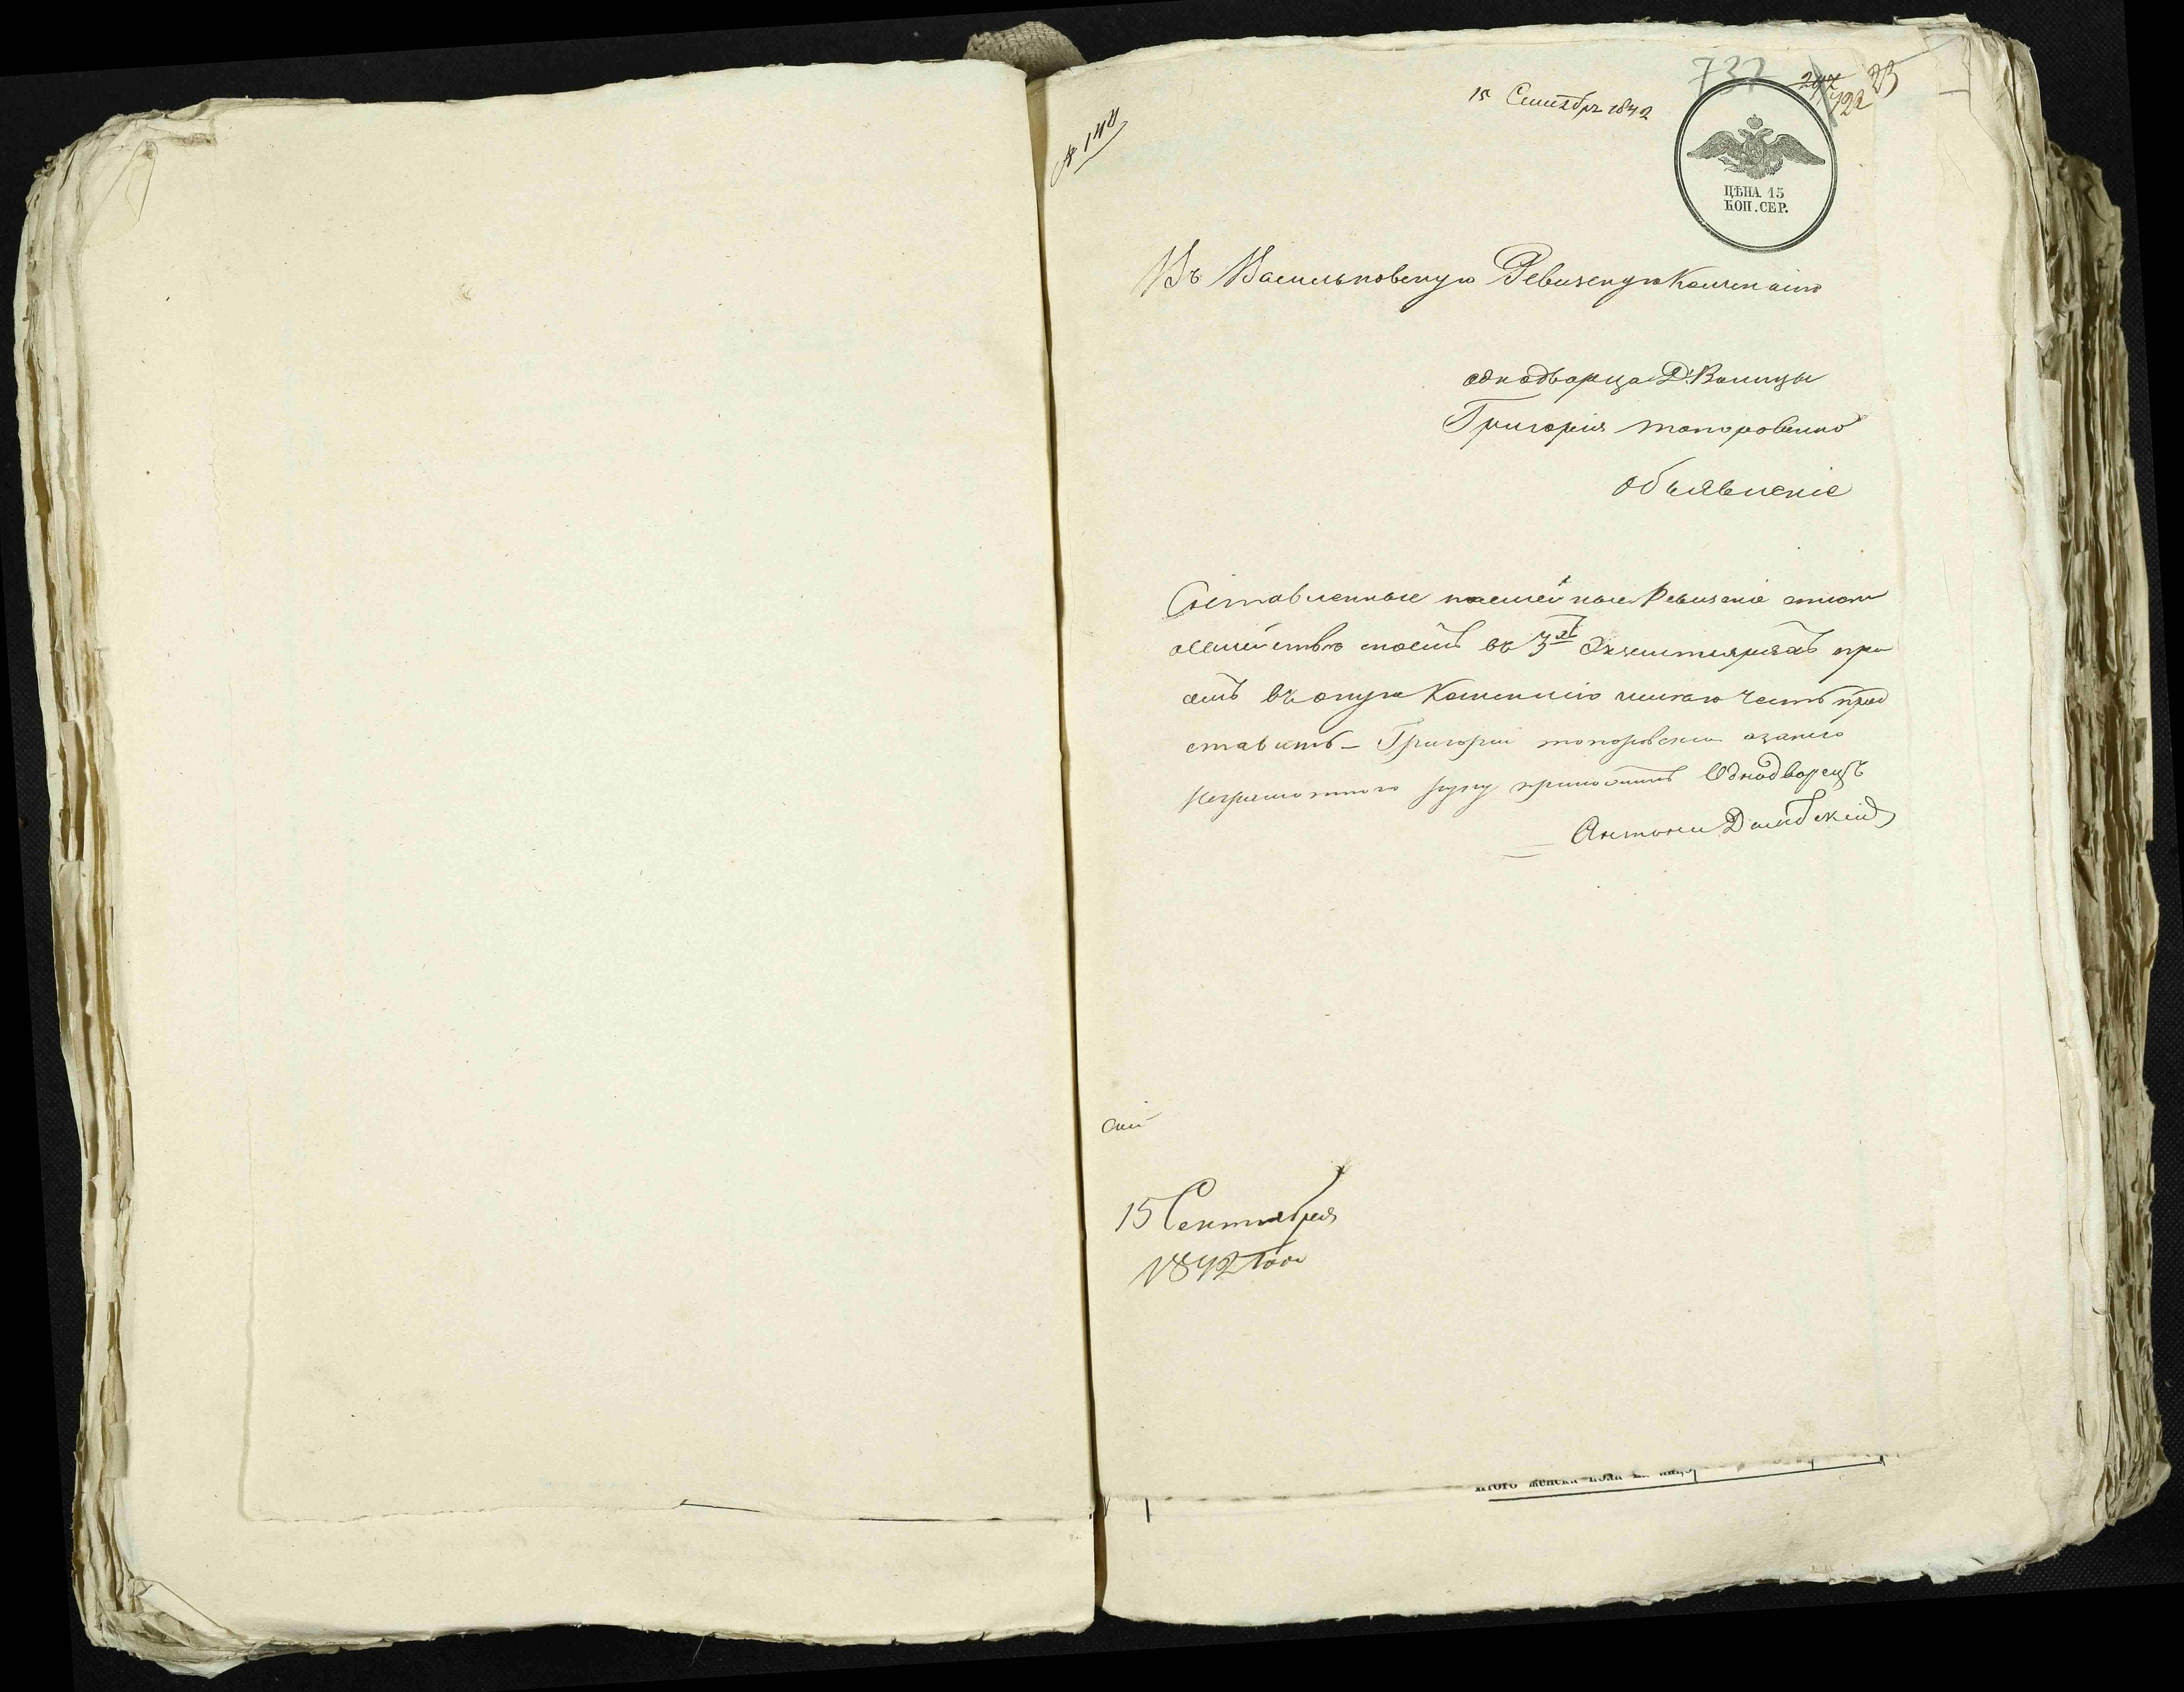 № 144
15 Сентября 1842
732
247
122
23
ЦѢНА 15
КОП. СЕР.
Въ Васильковскую Ревизскую Коммисію
однодворца Д. Волицы
Григорія Топоровского
объявленіе
Составленные ныне Ревизскіе
о семействѣ моемъ въ 3хъ Экземплярахъ при
семъ въ оную Коммисію имею честь пред
ставить – Григорій Топоровский а за него
неграмотного руку приложилъ Однодворецъ
Антони Домбскій
15 Сентября
1842 года
итого женска пола на лицо